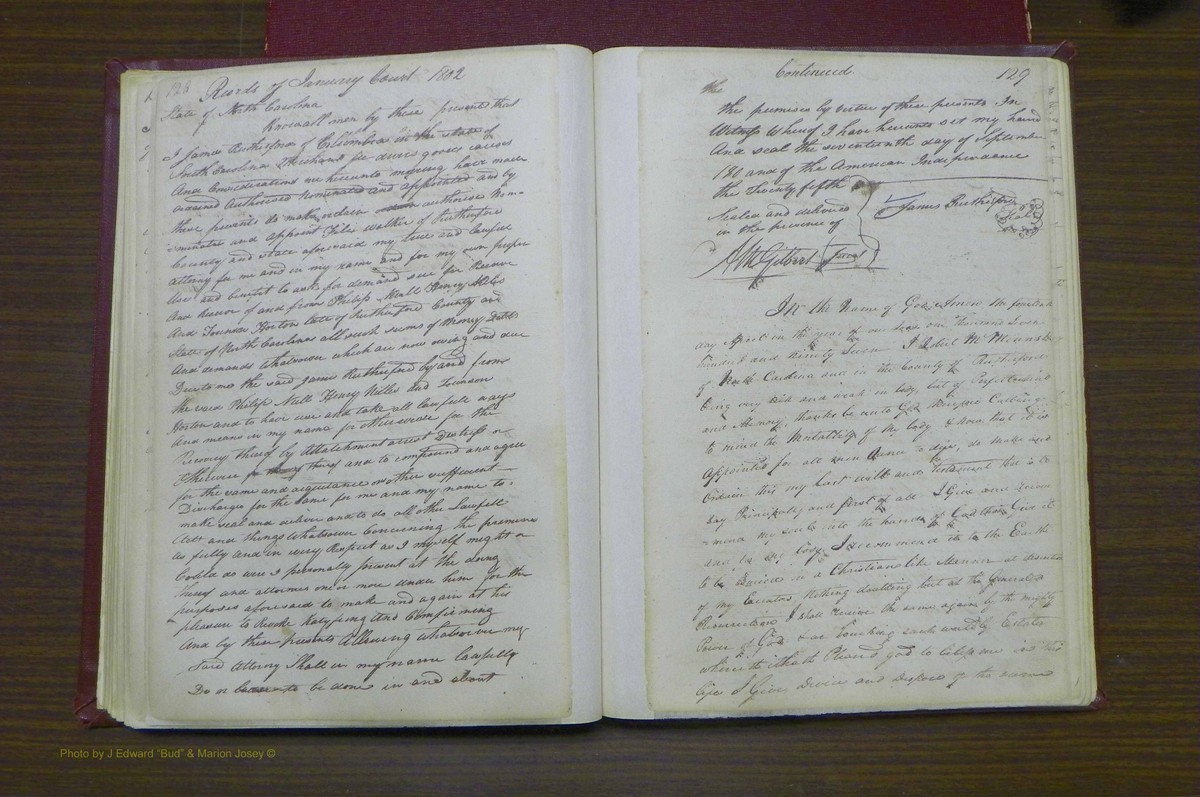 128 Records of January Court 1802
State of North Carolina
Know all men by these presents that
I James Rutherford of Columbia in the state of
South Carolina Merchant for divers good causes
And Considerations me hereunto moving have made
ordained Authorised Nominated and appointed and by
these presents do make ordain authorise Nom-
inate and appoint Felix Walker of Rutherford
County and state aforesaid my true and lawful
attorney for me and in my name and for my own proper
Use and benefit to ask for demand sue for Recover
And Receive of and from Philip Null Henry Miller
And Townson Horton late of Rutherford County and
State of North Carolina all such sums of Money Debts
And demands whatsoever which are now owing and due
Due to me the said James Rutherford by and from
the said Philip Null Henry Miller and Townson
Horton and to have use and take all lawfull ways
And means in my name for otherwise for the
Recovery thereof by Attachment arrest Distress or
Otherwise and to compound and agree
for the same and acquittance or other sufficient
Discharge for the same for me and my name to
make seal and deliver and to do all other Lawfull
Acts and things whatsoever concerning the premises
as fully and in every Respect as I myself might or
Could do were I personally present at the doing
thereof and attornies one or more under him for the
purposes aforesaid to make and again at his
pleasure to Revoke Ratifying And Confirming
And by these presents Allowing whatsoever my
Said Attorney Shall in my name lawfully
Do or cause to be done in and about
Continued 129
the
the premises by virtue of these presents In
Witness whereof I have hereunto set my hand
And seal the seventeenth day of September
180 and of the American Independance
the twenty fifth
Sealed and delivered
in the presence of
James Rutherford
Seal
WM Gilbert Jurat
In the Name of God Amen the fourteth
any April in the year of our Lord one Thousand Seven
hundred and Ninety Seven I
of North Carolina and in the County of Rutherford
being very Sick and weak in body, but of Perfect mind
and Memory, thanks be unto God therefore Calling
to mind the Mortality of my body & know that it is
Appointed for all men Once to dye, do make and
Ordain this my Last Will and Testament that is to
say Principally and first of all I Give and Recom
-mend my soul into the hands of God that Give it
and for my body I recommend it to the Earth
to be Buried in a Christian like Manner at discretion
of my Executors Nothing doubting but at the General
Resurrection I shall receive the same again by the mighty
Power of God & as touching such worldly Estate
wherewith it hath Pleased god to bless me in this
life I Give Devise and dispose of the same
Photo by J Edward "Bud" & Marion Josey ©